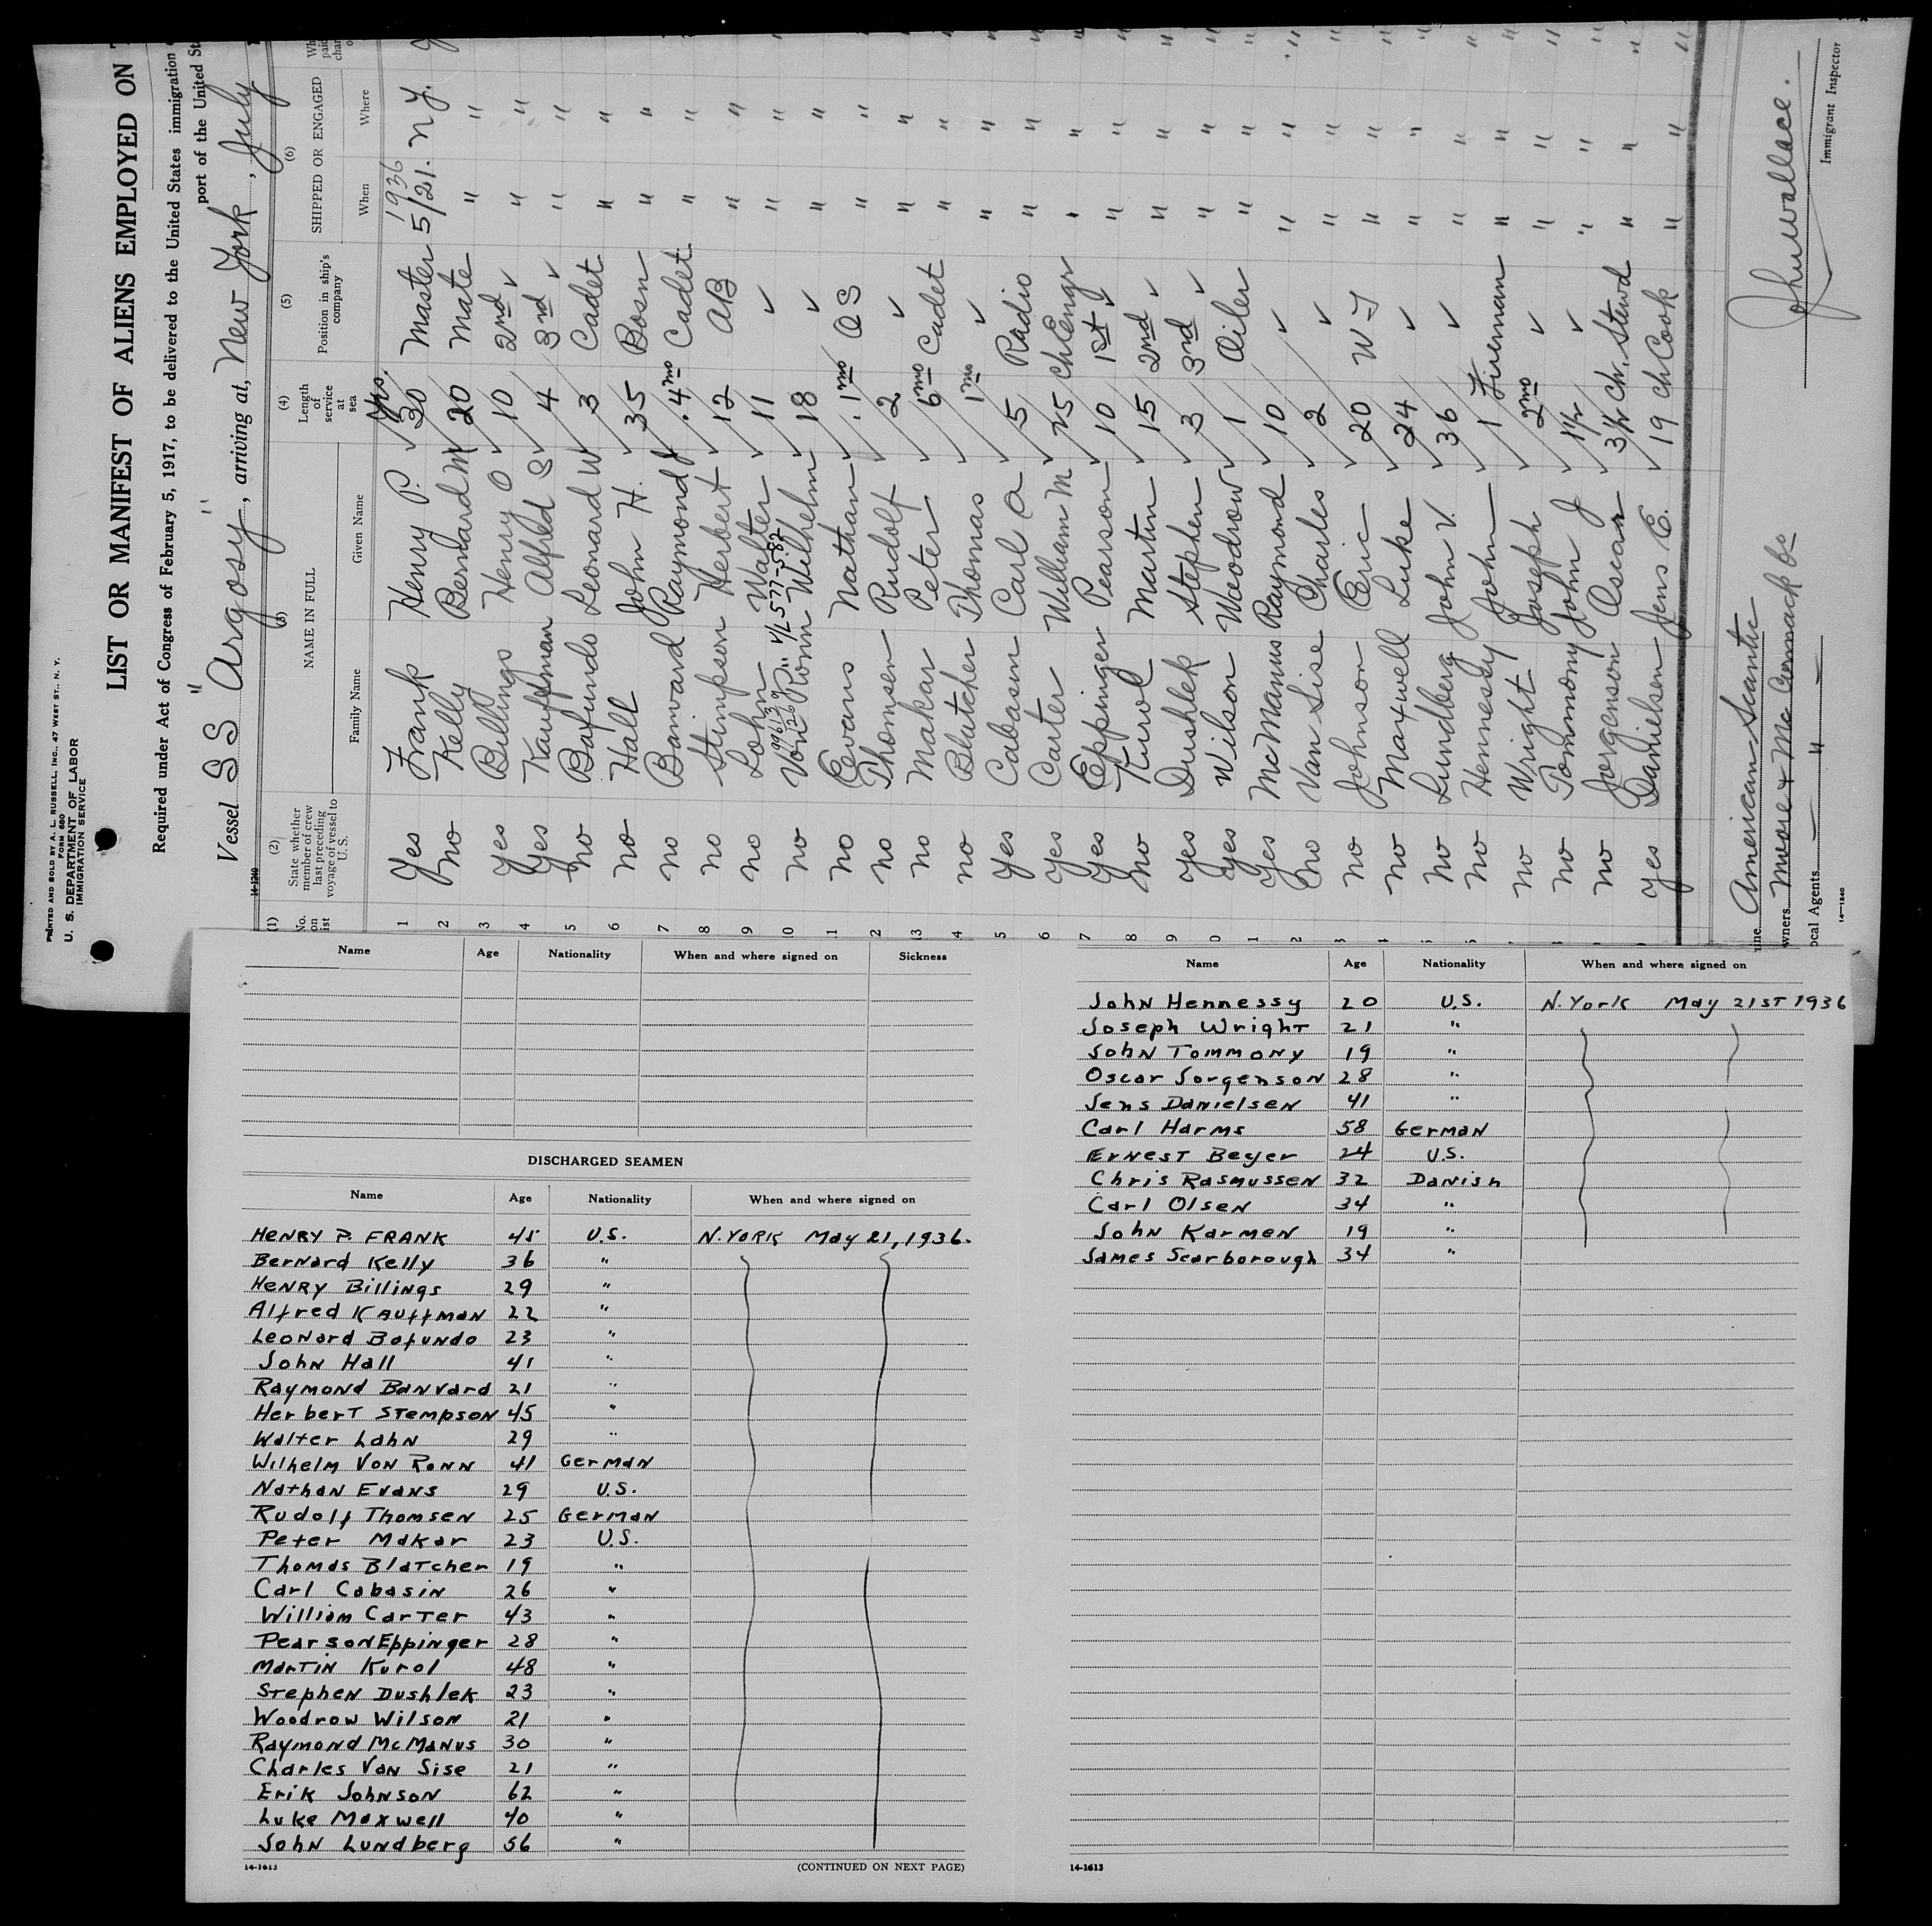 PRINTED AND SOLD BY A. L. RUSSELL, INC., 47 WEST ST., N. Y.
FORM 680
U. S. DEPARTMENT OF LABOR
IMMIGRATION SERVICE
LIST OR MANIFEST OF ALIENS EMPLOYED ON
Required under Act of Congress of February 5, 1917, to be delivered to the United States immigration
port of the United St
Vessel SS "Argosy", arriving at, New York, July
14-1240
(1) (2) (3) (4) (5) (6)
No. on list State whether member of crew last preceding voyage of vessel to U.S. NAME IN FULL Family Name Given Name Length of service at sea Position in ship's company SHIPPED OR ENGAGED When Where
Yrs. 1936
1 Yes Frank Henry P. 30 Master 5/21. N Y.
2 no Kelly Bernard M 20 Mate " "
3 Yes Billings Henry O 10 2nd ✓ " "
4 Yes Kauffman Alfred S 4 3rd ✓ " "
5 no Bafundo Leonard W 3 Cadet " "
6 no Hall John H. 35 Bosn " "
7 no Banvard Raymond J 4mo Cadet " "
8 no Stimpson Herbert 12 AB " "
9 no Lahn Walter 11 ✓ " "
V/L 577-582
10 no Von Ronn Wilhelm 18 ✓ " "
11 no Evans Nathan 1mo OS " "
2 no Thomsen Rudolf 2 ✓ " "
13 no Makar Peter 6mo Cadet " "
4 no Blatcher Thomas 1mo ✓ " "
5 Yes Cabasin Carl A 5 Radio " "
6 Yes Carter William M 25 Ch Engr " "
7 Yes Eppinger Pearson 10 1st ✓ " "
8 no Kurol Martin 15 2nd ✓ " "
9 Yes Dushlek Stephen 3 3rd ✓ " "
0 Yes Wilson Woodrow 1 Oiler " "
1 Yes McManus Raymond 10 ✓ " "
2 no Van Sise Charles 2 ✓ " "
3 no Johnson Eric 20 W T " "
4 no Maxwell Luke 24 ✓ " "
5 no Lundberg John V. 36 ✓ " "
no Hennessy John 1 Fireman " "
no Wright Joseph 2mo ✓ " "
no Tommony John J 1yr ✓ " "
no Jorgenson Oscar 3yr Ch. Stewd " "
yes Danielsen Jens E. 19 Ch Cook " "
ine American Scantic
wners Moore & Mc Cormack Co
ocal Agents "
14-1240
John Wallace.
Immigrant Inspector
Name Age Nationality When and where signed on Sickness
DISCHARGED SEAMEN
Name Age Nationality When and where signed on
HENRY P. FRANK 45 U.S. N.YORK May 21, 1936.
Bernard Kelly 36 "
HENRY Billings 29 "
Alfred KAuffman 22 "
Leonard Bafundo 23 "
John Hall 41 "
Raymond Banvard 21 "
Herbert Stempson 45 "
Walter Lahn 29 "
Wilhelm Von Ronn 41 German
Nathan Evans 29 U.S.
Rudolf Thomsen 25 German
Peter Makar 23 U.S.
Thomas Blatcher 19 "
Carl Cabasin 26 "
William Carter 43 "
Pearson Eppinger 28 "
Martin Kurol 48 "
Stephen Dushlek 23 "
Woodrow Wilson 21 "
Raymond McManus 30 "
Charles Van Sise 21 "
Erik Johnson 62 "
Luke Maxwell 40 "
John Lundberg 56 "
14-1613 (CONTINUED ON NEXT PAGE)
Name Age Nationality When and where signed on
John Hennessy 20 U.S. N.York May 21ST 1936
Joseph Wright 21 "
John Tommony 19 "
Oscar Jorgenson 28 "
Jens Danielsen 41 "
Carl Harms 58 German
Ernest Beyer 24 U.S.
Chris Rasmussen 32 Danish
Carl Olsen 34 "
John Karmen 19 "
James Scarborough 34 "
14-1613